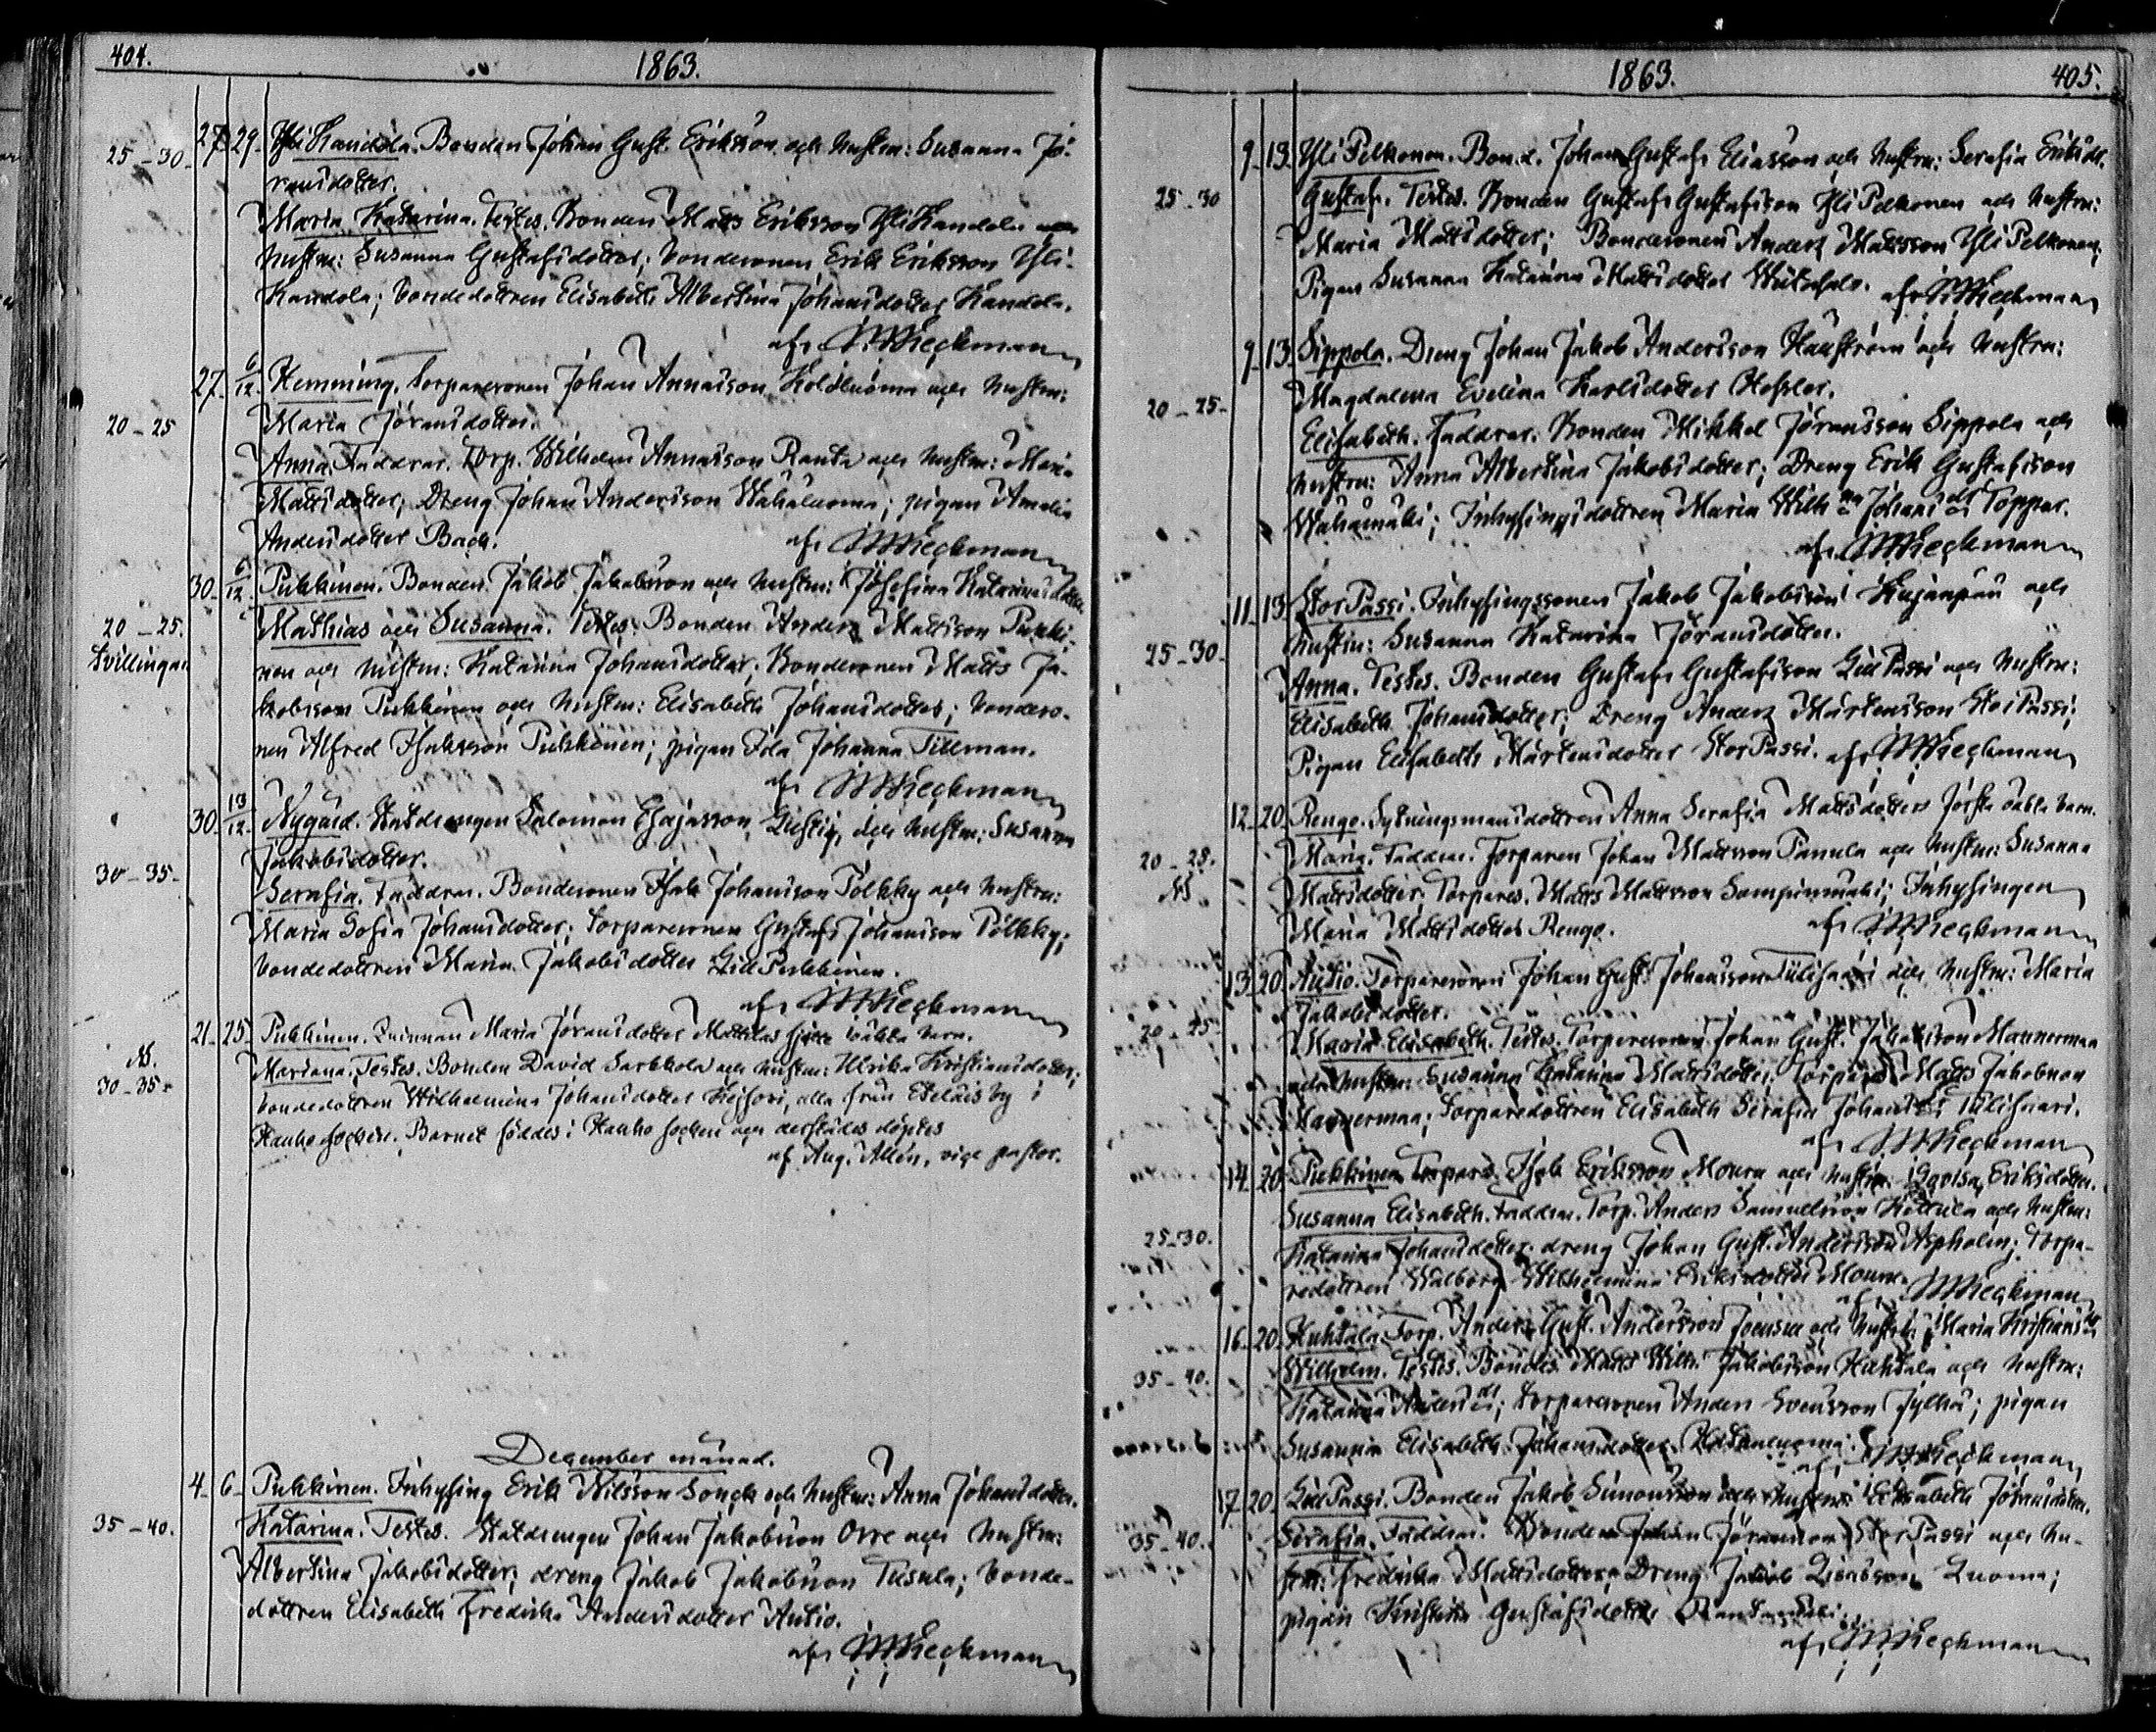 404.
1863.
25-30. 27. 29. Yli Kandola. Bonden Johan Gust. Eriksson och hustru: Susanna Jö-
ransdotter.
Maria Katarina. Testes. Bonden Matts Eriksson Yli Kandola och
hustru: Susanna Gustafsdotter; bondesonen Erik Eriksson Yli-
Kandola; bondedottren Elisabeth Albertina Johansdotter Kandola.
af Wieckman
27. 6/12. Hemming. Torparesonen Johan Annasson Koldluoma och hustru:
20-25 Maria Jöransdotter.
Anna. Faddrar. Torp. Wilhelm Annasson Ranta och hustru: Maria
Mattsdotter; Dreng Johan Andersson Wähäluoma; pigan Amalia
Andersdotter Back.
af Wieckman
30. 6/12. Pukkinen. Bonden Jakob Jakobsson och hustru: Josefina Katarinasdotter
20-25. Mathias och Susanna. Testes: Bonden Anders Mattsson Pukki-
Tvillingar nen och hustru: Katarina Johansdotter; Bondesonen Matts Ja-
kobsson Pukkinen och hustru: Elisabeth Johansdotter; bondeso-
nen Alfred Isaksson Pukkinen; pigan Ida Johanna Tillman.
af Wieckman
30. 13/12. Nygård. Statdrengen Salomon Esajasson och hustru: Susanna
Jakobsdotter.
30-35. Serafia. Faddrar. Bondesonen Isak Johansson Pölkky och hustru:
Maria Sofia Johansdotter; Torparesonen Gustaf Johansson Pölkky;
bondedottren Maria Jakobsdotter Lill Pukkinen.
af Wieckman
21. 25. Pukkinen. Quinnan Maria Jöransdotter Mattilas oäkta barn.
N. Mariana. Testes. Bonden David Sarkkola och hustru: Ulrika Kristiansdotter;
30-35. bondedottren Wilhelmina Johansdotter alla från Etelais by i
Kauho socken. Barnet föddes i Kauho socken och derstädes döptes
af Aug. Allén, vice pastor.
December månad.
4. 6. Pukkinen. Inhysing Erik Nilsson Sonck och hustru: Anna Johansdotter.
35-40. Katarina. Testes. Statdrengen Johan Jakobsson Orre och hustru:
Albertina Jakobsdotter; dreng Jakob Jakobsson Tusula; bonde-
dottren Elisabeth Fredrika Andersdotter Autio.
af Wieckman
1863.
405.
9. 13. Yli Pelkonen. Bond. Johan Gustaf Eliasson och hustru: Serafia Eriksdr.
25-30 Gustaf. Testes. Bonden Gustaf Gustafsson Yli Pelkonen och hustru:
Maria Mattsdotter; Bondesonen Anders Mattsson Yli Pelkonen;
Pigan Susanna Katarina Mattsdotter af Wieckman
9. 13. Sippola. Dreng Johan Jakob Andersson Hanström och hustru:
20-25. Magdalena Evelina Karlsdotter
Elisabeth. Faddrar. Bonden Mikkel Jöransson Sippola och
hustru: Anna Albertina Jakobsdotter; Dreng Erik Gustafsson
Wähämäki; Inhysingsdottren Maria Wilhna Johansdr Toppar.
af Wieckman
11. 13. Stor Passi. Inhysingssonen Jakob Jakobsson Kujanpää och
25-30. hustru: Susanna Katarina Jöransdotter.
Anna. Testes. Bonden Gustaf Gustafsson Lill Passi och hustru:
Elisabeth Johansdotter; Dreng Anders Mårtensson Stor Passi;
Pigan Elisabeth Mårtensdotter Stor Passi. af Wieckman
12. 20. Rengo. Sytningsmansdottren Anna Serafia Mattsdotters första oäkta barn.
20-25. Maria. Faddrar. Torparen Johan Mattsson Panula och hustru: Susanna
N. Mattsdotter; Torpares. Matts Mattsson Sampinmäki; Inhysingen
Maria Mattsdotter Rengo. af Wieckman
13. 20. Autio. Torparesonen Johan Gust. Johansson Tulisaari och hustru: Maria
Jakobsdotter.
20-25. Maria Elisabeth. Testes. Torparesonen Johan Gust. Jakobsson Mannermaa
och hustru: Susanna Katarina Mattsdotter; Torpares. Matts Jakobsson
Mannermaa; Torparedottren Elisabeth Serafia Johansdr Tulisaari.
af Wieckman
14. 20. Pukkinen. Torpares. Isak Eriksson Mours och hustru: Lovisa Eriksdotter.
Susanna Elisabeth. Faddrar. Torp. Anders Samuelsson Kottula och hustru:
25-30. Katarina Johansdotter; dreng Johan Gust. Andersson Aspholm; Torpa-
redottren Walborg Wilhelmina Eriksdotter Mours. af Wieckman
16. 20. Huhtala. Torp. Anders Gust. Andersson Joensuu och hustru: Maria Kristiansdr
35-40. Wilhelm. Testes. Bondes. Matts Wilh. Jakobsson Huhtala och hustru:
Katarina Andersdr; Torparesonen Anders Svensson Jylhä; pigan
Susanna Elisabeth Johansdotter
af Wieckman
17. 20. Lill Passi. Bonden Jakob Simonsson och hustru: Elisabeth Jöransdotter.
35-40. Serafia. Faddrar. Bonden Johan Jöransson Stor Passi och hu-
stru: Fredrika Mattsdotter; Dreng Jakob Luoma;
pigan Kristina Gustafsdotter
af Wieckman